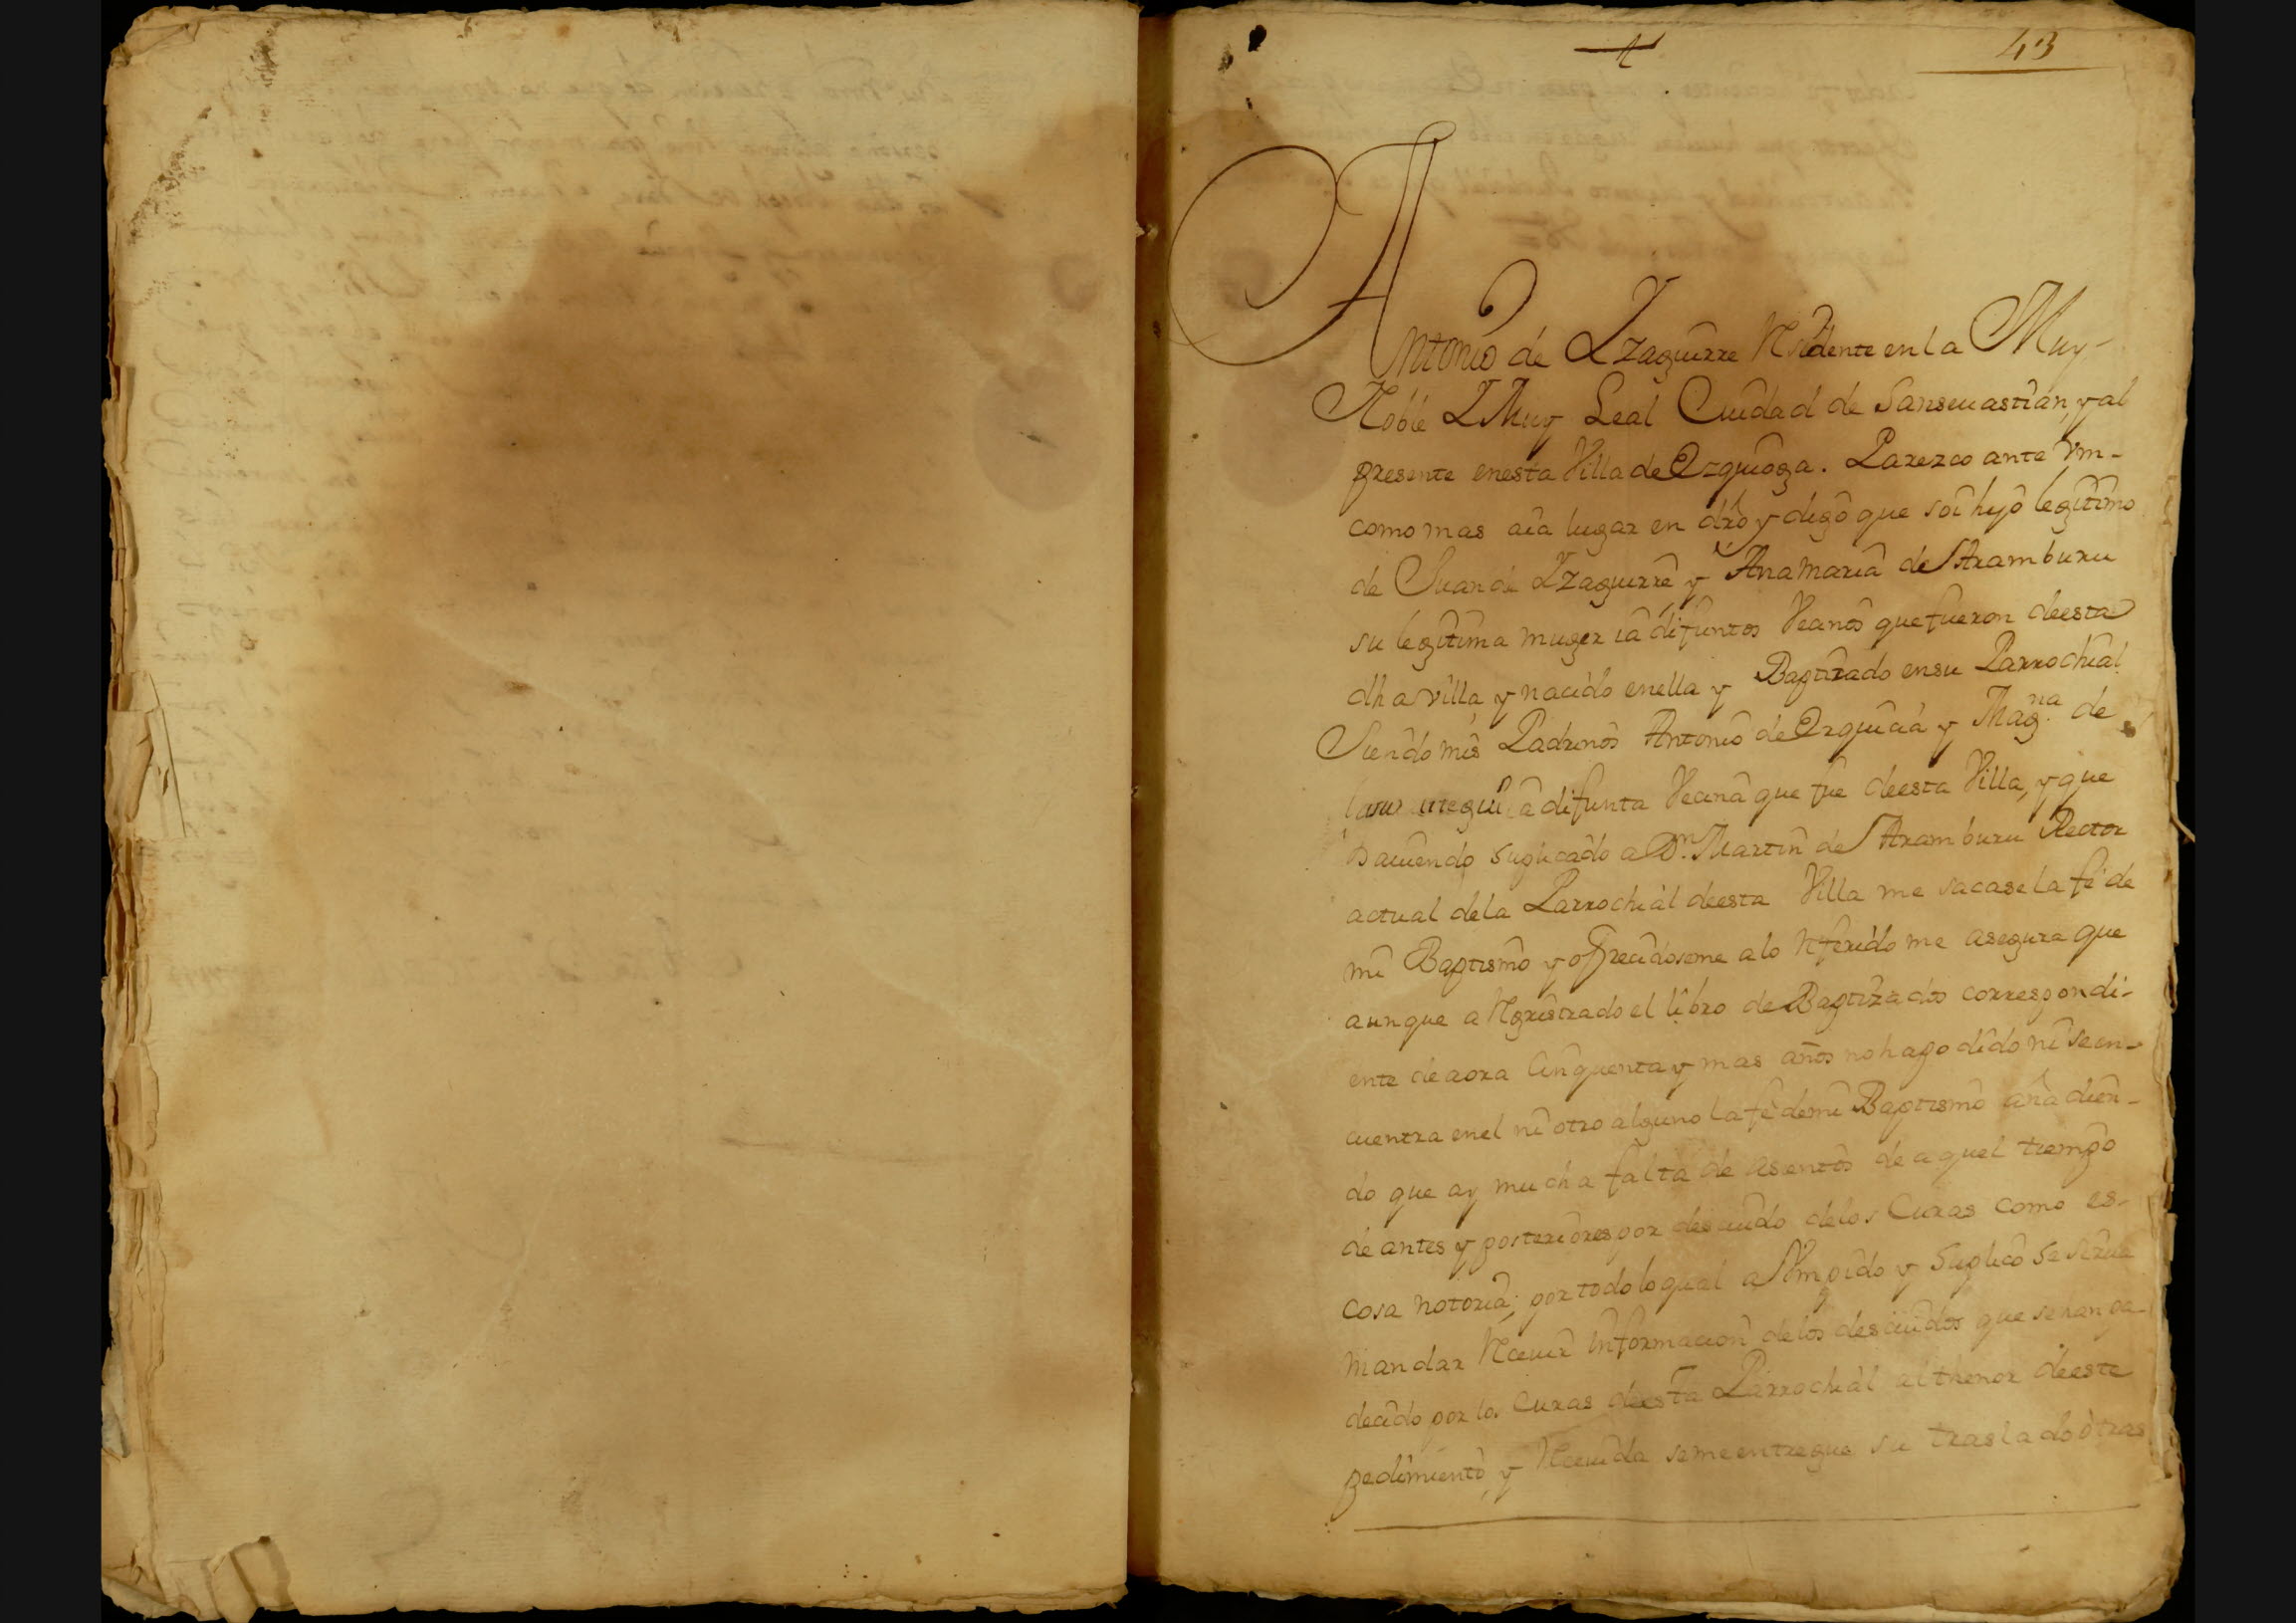 43
Antonio de Yzaguirre Residente en la Muy
Noble Y Muy Leal Ciudad de Sanseuastian, y al
presente en esta Villa de Ezquioga. Parezco ante Vm-
como mas aia lugar en dro y digo que soi hijo legitimo
de Juan de Yzaguirre y Ana Maria de Aramburu
su legitima muger ia difuntos Vecinos que fueron de esta
dha villa y nacido en ella y Baptizado en su Parrochial
Siendo mis Padrinos Antonio de y Mag.na de
difunta Vecina que fue de esta Villa, y que
hauiendo suplicado a Dn. Martin de Aramburu Rector
actual de la Parrochial de esta Villa me sacase la fé de
mi Baptismo y ofreciendoseme a lo Referido me asegura que
aunque a Registrado el libro de Baptizados correspondi-
ente de aora Cinquenta y mas años no ha podido ni se en-
cuentra en el ni otro alguno la fe de mi Baptismo añadien-
do que ay mucha falta de asientos de aquel tiempo
de antes y posteriores por descuido de los Curas como es-
cosa notoria; por todo lo qual a Vm pido y suplico se sirua
mandar Receuir Informacion de los descuidos que se han pa-
decido por los Curas de esta Parrochial al thenor de este
pedimiento, y Receuida se me entregue su traslado o tras